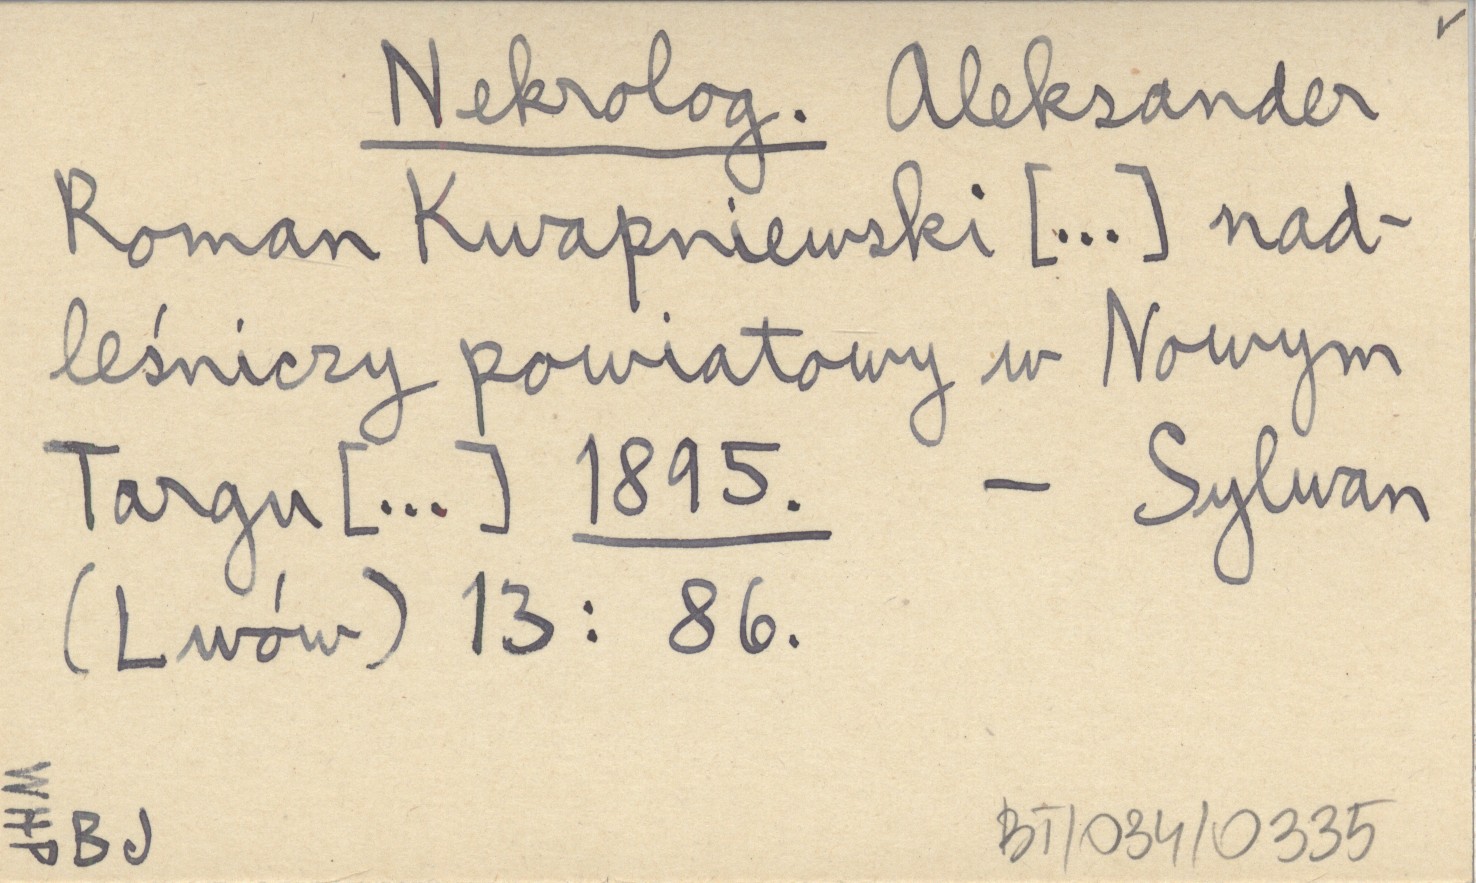 Nekrolog. Aleksander
Roman Kwapniewski [...] nad-
leśniczy powiatowy w Nowym
Targu [...] 1895. — Sylwan
(Lwów) 13: 86.
WHP
BJ
BT/034/0335